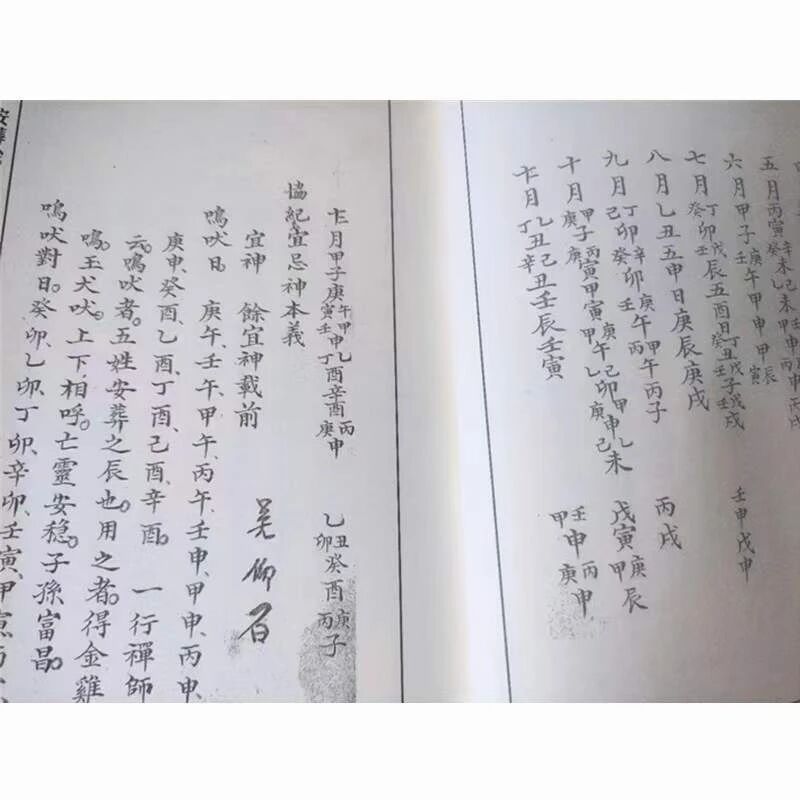 五月丙寅
六月甲子壬庚午甲申甲寅辰 壬申戊申
七月癸丁卯壬戊辰五酉日癸丑壬戊子
八月乙丑五申日庚辰庚戌 丙戌
九月己丁卯辛卯壬庚午丙甲午丙子 戊寅甲庚辰
十月庚甲子庚丙寅甲寅甲午庚己卯庚甲申己乙未 甲壬申庚丙申
十一月乙丑辛己丑壬辰壬寅
十二月甲子庚寅壬午甲申丁乙酉辛酉庚丙申 乙卯丑癸酉丙庚子
協紀宜忌神本義
宜神 餘宜神載前 吴仰召
鳴吠日。庚午、壬午、甲午、丙午、壬申、甲申、丙申、
庚申、癸酉、乙酉、丁酉、己酉、辛酉。 一行禪師
云。鳴吠者。五姓安葬之辰也。用之者。得金雞
鳴。玉犬吠。上下相呼。亡靈安稳。子孫富昌。
鳴吠對日。癸卯、乙卯、丁卯、辛卯、壬寅、甲寅、丙